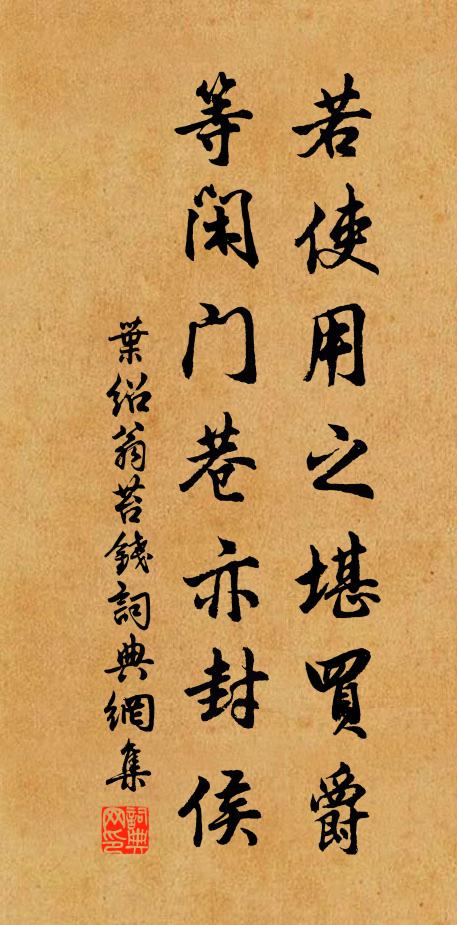 若使用之堪買爵
等閑門巷亦封侯
葉紹翁苔錢詞典網集
詞典网印